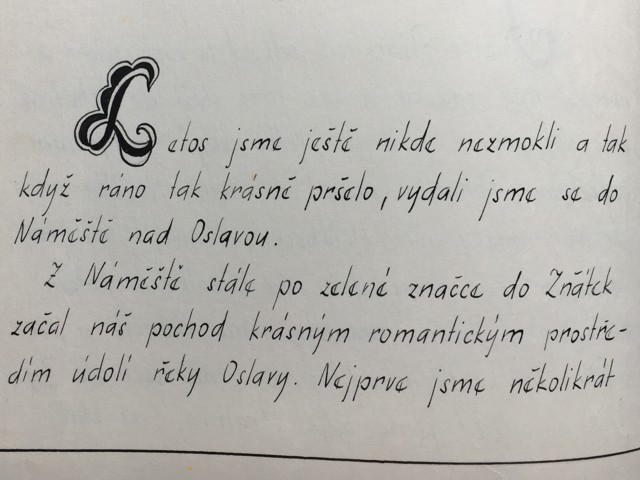 Letos jsme ještě nikde nezmokli a tak
když ráno tak krásně pršelo, vydali jsme se do
Náměště nad Oslavou.
Z Náměště stále po zelené značce do Zňátek
začal náš pochod krásným romantickým prostře-
dím údolí řeky Oslavy. Nejprve jsme několikrát